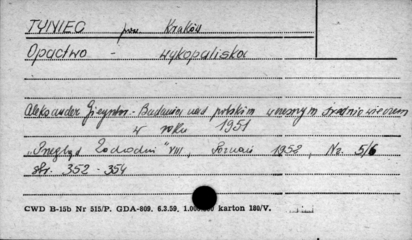 TYNIEC pow. Kraków
Opactwo - wykopaliska
Aleksander Gieysztor - Badania nad polskim wczesnym średniowieczem
w roku 1951
"Przegląd Zachodni" VIII, Poznań 1952, Nr. 5/6
str. 352 - 354
CWD B-15b Nr 515/P. GDA-809. 6.3.59. karton 180/V.